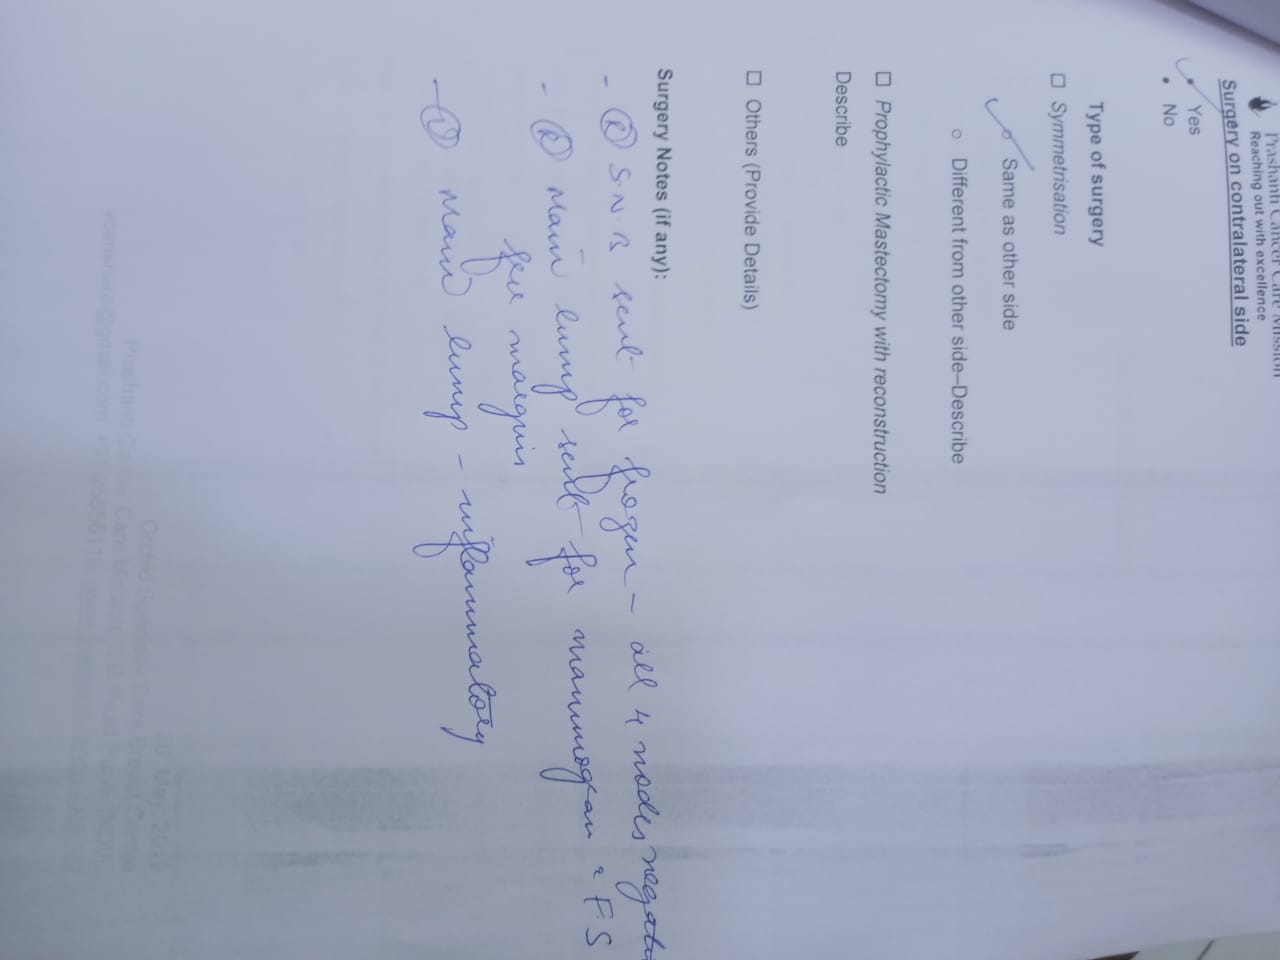 Prashanti Cancer Care Mission
Reaching out with excellence
Surgery on contralateral side
• Yes
• No
Type of surgery
☐ Symmetrisation
o Same as other side
o Different from other side–Describe
☐ Prophylactic Mastectomy with reconstruction
Describe
☐ Others (Provide Details)
Surgery Notes (if any):
- Ⓡ S.N.B sent for frozen – all 4 nodes negati
- Ⓡ Main lump sent for mammogram & F.S
for margin
- Ⓛ main lump – inflammatory
07 May, 2016
Orchid Speciality Care Breast Centre
Prashanti Cancer Care Mission